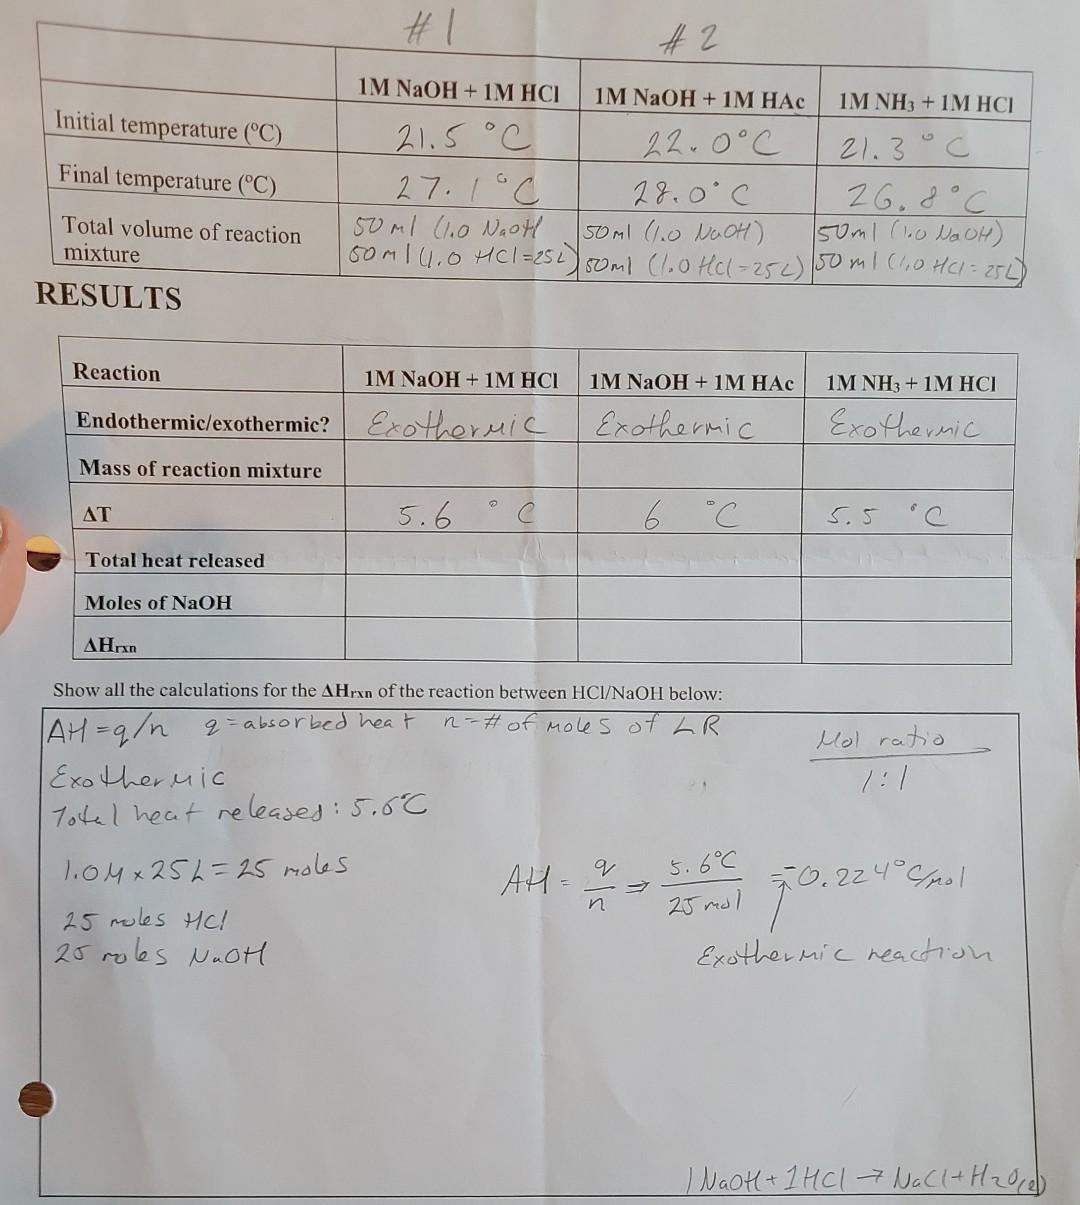 #1 #2
1M NaOH + 1M HCl 1M NaOH + 1M HAc 1M NH₃ + 1M HCl
Initial temperature (°C) 21.5 °C 22.0°C 21.3 °C
Final temperature (°C) 27.1 °C 28.0°C 26.8°C
Total volume of reaction mixture
50 ml (1.0 NaOH 50ml (1.0 NaOH) 50ml (1.0 NaOH)
50 ml (1.0 HCl=25L) 50ml (1.0 HCl=25L) 50 ml (1.0 HCl=25L)
RESULTS
Reaction 1M NaOH + 1M HCl 1M NaOH + 1M HAc 1M NH₃ + 1M HCl
Endothermic/exothermic? Exothermic Exothermic Exothermic
Mass of reaction mixture
ΔT 5.6 °C 6 °C 5.5 °C
Total heat released
Moles of NaOH
ΔHrxn
Show all the calculations for the ΔHrxn of the reaction between HCl/NaOH below:
ΔH=q/n q=absorbed heat n=# of moles of LR
Mol ratio
1:1
Exothermic
Total heat released: 5.6°C
1.0M x 25L = 25 moles
ΔH = q/n ⇒ 5.6°C/25 mol = -0.224°C/mol
25 moles HCl
25 moles NaOH
Exothermic reaction
1NaOH + 1HCl → NaCl + H₂O(l)